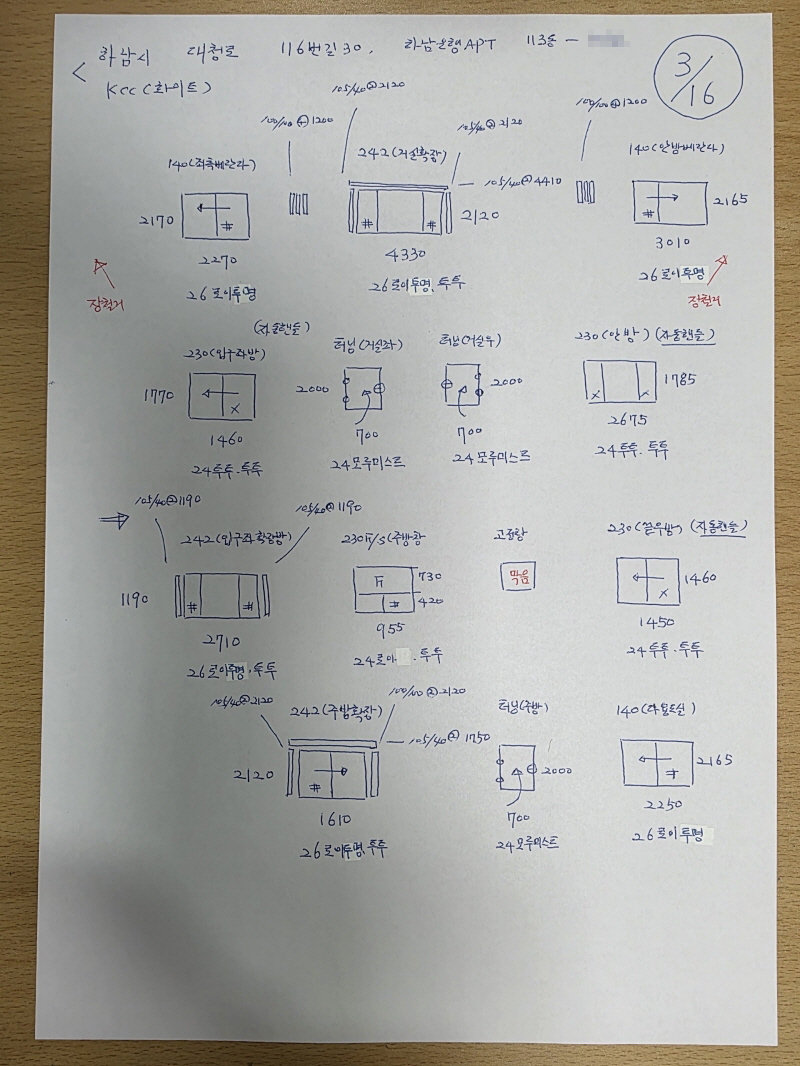 하남시 대청로 116번길 30, 하남은행APT 113동 -
KCC(화이트)
3/16
105/40@2120
100/100@1200
105/40@2120
100/100@1200
140(좌측베란다)
242(거실확장)
140(안방베란다)
105/40@4410
2170
2120
2165
2270
4330
3010
26로이투명
26로이투명, 투투
26로이투명
장철거
장철거
(자동핸들)
230(입구좌방)
터닝(거실좌)
터닝(거실우)
230(안방)(자동핸들)
1770
2000
2000
1785
1460
700
700
2675
24투투.투투
24모루미스트
24모루미스트
24투투.투투
105/40@1190
105/40@1190
242(입구좌확장방)
230F/S(주방창
고정창
230(끝우방)(자동핸들)
1190
F
730
420
막음
1460
2710
955
1450
26로이투명.투투
24로이 . 투투
24투투.투투
105/40@2120
100/100@2120
242(주방확장)
터닝(주방)
140(다용도실)
105/40@1750
2120
2000
2165
1610
700
2250
26로이투명, 투투
24모루미스트
26로이투명